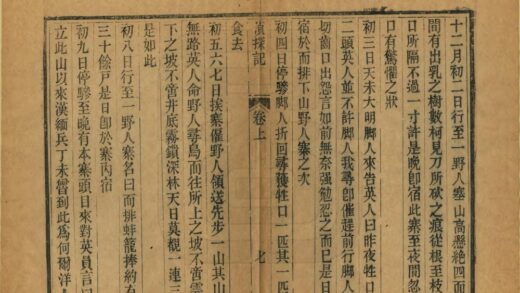 十二月初二日行至一野人寨山高懸絶四面
間有出乳之樹數柯見刀所砍之痕從根至枝
口所隔不過一寸許是晩卽宿此寨至夜間忽
口有驚懼之狀
初三日天未大明脚人來告英人曰昨夜牲口
二頭英人並不許脚人我尋卽催趕前行脚人
切齒口出怨言如前無奈强勉忍之而已是日
宿於而排下山野人寨之次
初四日停驂脚人折回尋獲牲口一匹其一匹
探記 卷上 七
食去
初五六七日挨寨催野人領送先步一山其山
無路英人命野人尋鳥而往所上之坡不啻雲
下之坡不啻井底霧鎖深林天日莫覩一連三
是如此
初八日行至一野人寨名曰而排蚌龍捧約有
三十餘戸是日卽於寨丙宿
初九日停驂至晩有本寨頭目來對英員言曰
立此山以來漢緬兵丁未嘗到此爲何爾洋人